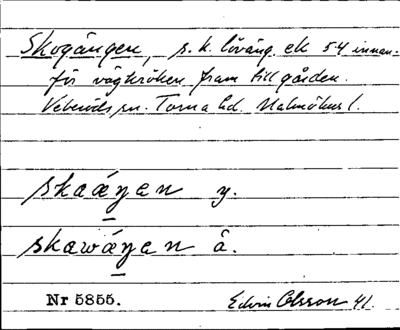 Skogången, s.k. löväng. ek 54 innan-
för vägkröken fram till gården.
Veberöds sn. Torna hd. Malmöhus l.
skaáŋen y.
skawáŋen ä.
Nr 5855.
Edvin Olsson 41.